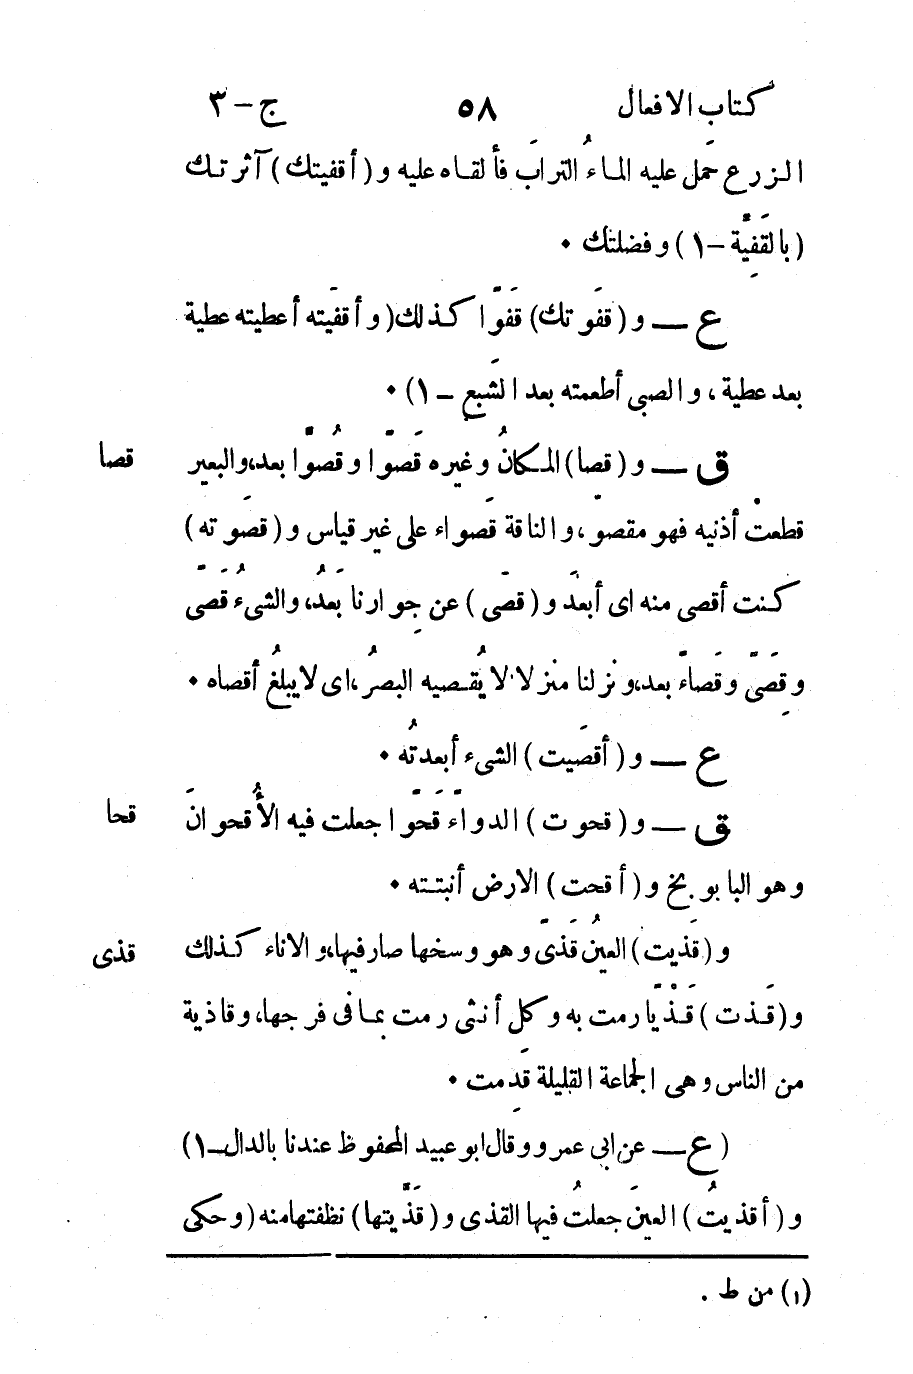 كتاب الافعال ٥٨ ج – ٣
الزرع حَمل عليه الماءُ الترابَ فألقاه عليه و (أقفيتك) آثرتك
(بالقَفِيَّة – ١) وفضلتك •
ع — و (قفَوتك) قَفَوًّا كذلك (وأقفَيته أعطيته عطية
بعد عطية، والصبي أطعمته بعد الشَبع – ١) •
ق — و (قصا) المكانُ وغيره قَصوًا وقُصوًّا بعد، والبعير قصا
قطعتْ أذنيه فهو مقصوّ، والناقة قَصواء على غير قياس و (قصَوته)
كنت أقصى منه اى أبعدَ و (قصَى) عن جِوارنا بَعُدَ، والشىءُ قَصًى
وقِصًى وقَصاءً بعد، ونزلنا منْزلا لا يُقصيه البصرُ، اى لا يبلغُ أقصاه •
ع — و (أقصَيت) الشىء أبعدتُه •
ق — و (قحوت) الدواءَ قَحَوًا جعلت فيه الأُقحوانَ قحا
وهو البابونج و (أقحت) الارض أنبتته •
و (قَذِيت) العينُ قَذًى وهو وسخها صار فيها، والاناء كذلك قذى
و (قَذت) قَذْيًا رمت به وكل أنثى رمت بما فى فرجها، وقاذية
من الناس وهى الجماعة القليلة قَدِمت •
(ع — عن ابي عمرو وقال ابو عبيد المحفوظ عندنا بالدال – ١)
و (أقذيتُ) العينَ جعلتُ فيها القذى و (قذَّيتها) نظفتها منه (وحكى
(١) من ط .